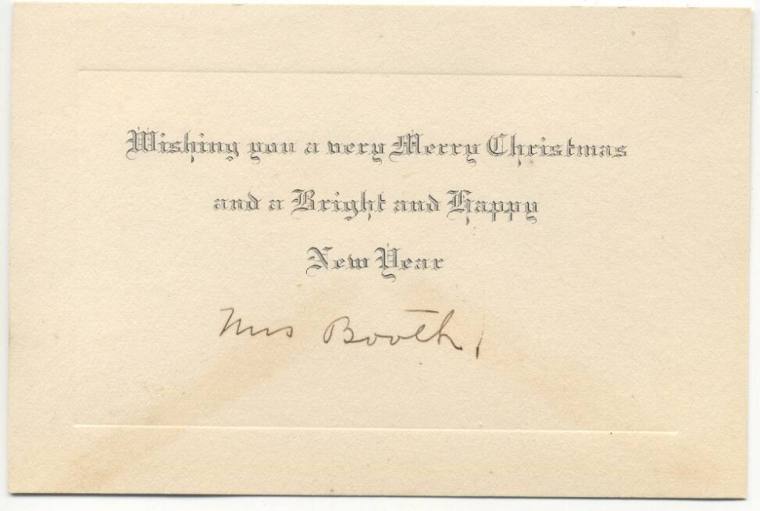 Wishing you a very Merry Christmas
and a Bright and Happy
New Year
Mrs Booth,